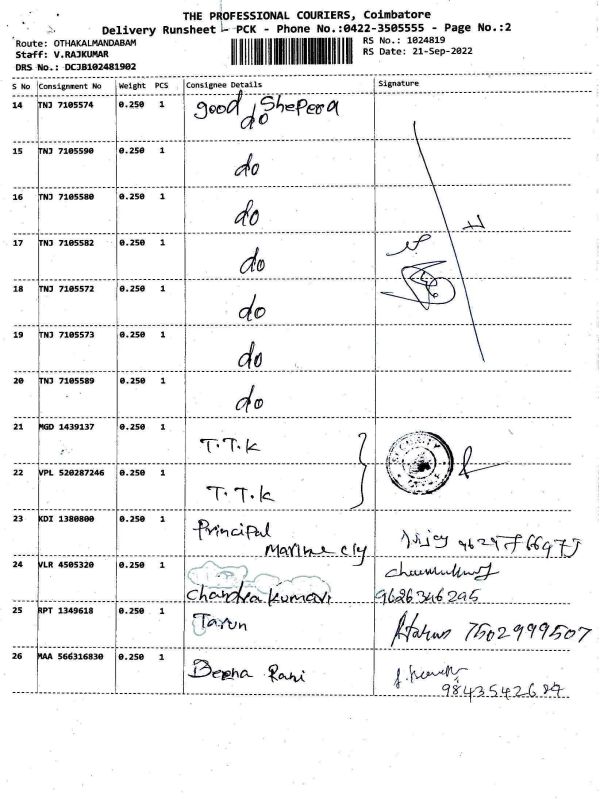 THE PROFESSIONAL COURIERS, Coimbatore
Delivery Runsheet - PCK - Phone No.:0422-3505555 - Page No.:2
Route: OTHAKALMANDABAM RS No.: 1024819
Staff: V.RAJKUMAR RS Date: 21-Sep-2022
DRS No.: DCJB102481902
S No Consignment No Weight PCS Consignee Details Signature
14 TNJ 7105574 0.250 1 good Sheperd
do
15 TNJ 7105590 0.250 1 do
16 TNJ 7105580 0.250 1 do
17 TNJ 7105582 0.250 1 do
18 TNJ 7105572 0.250 1 do
19 TNJ 7105573 0.250 1 do
20 TNJ 7105589 0.250 1 do
21 MGD 1439137 0.250 1 T.T.K
22 VPL 520287246 0.250 1 T.T.K
23 KDI 1380800 0.250 1 Principal
Marine cly
24 VLR 4505320 0.250 1
Chandra Kumari 9626346295
25 RPT 1349618 0.250 1 Tarun 7502999507
26 MAA 566316830 0.250 1 Beena Rani